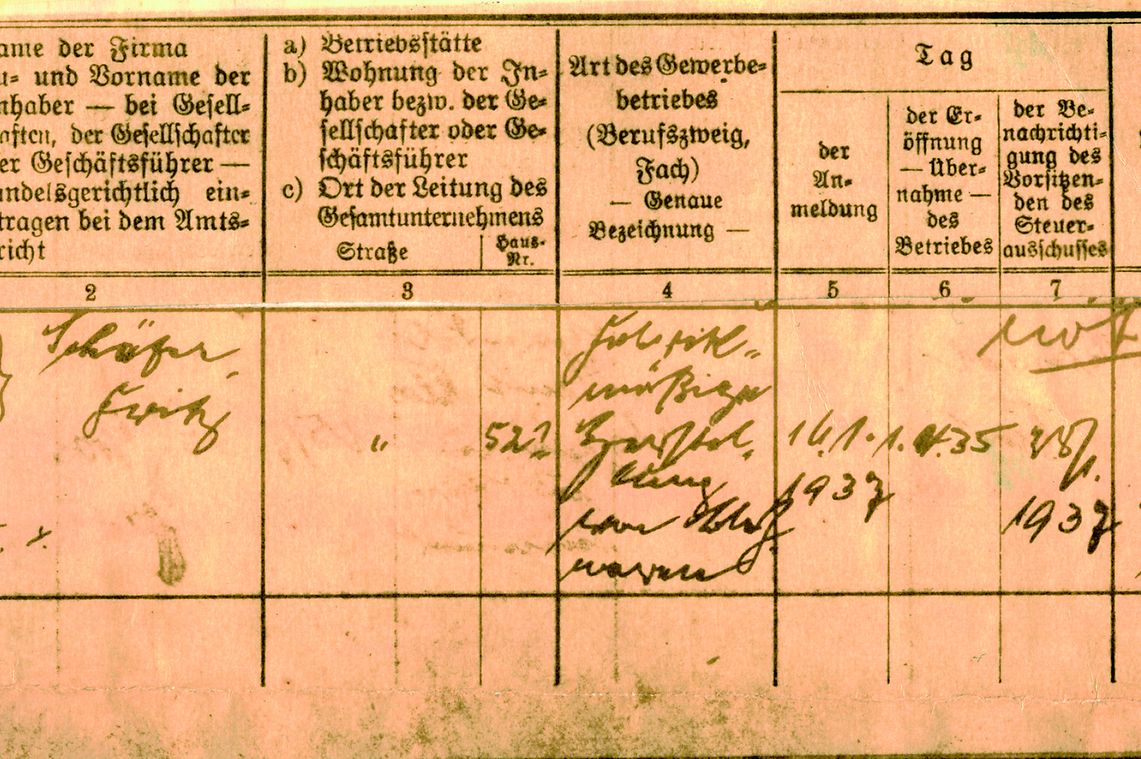 ame der Firma
u- und Vorname der
nhaber — bei Gesell-
aften, der Gesellschafter
er Geschäftsführer —
andelsgerichtlich ein-
tragen bei dem Amts-
richt
a) Betriebsstätte
b) Wohnung der In-
haber bezw. der Ge-
sellschafter oder Ge-
schäftsführer
c) Ort der Leitung des
Gesamtunternehmens
Straße
Haus-
Nr.
Art des Gewerbe-
betriebes
(Berufszweig,
Fach)
— Genaue
Bezeichnung —
Tag
der
An-
meldung
der Er-
öffnung
— Über-
nahme —
des
Betriebes
der Be-
nachrichti-
gung des
Vorsitzen-
den des
Steuer-
ausschusses
2
3
4
5
6
7
Schäfer
Fritz
"
52
Fabrik-
mäßige
Herstel-
lung
von
waren
1.4.35
1937
1937